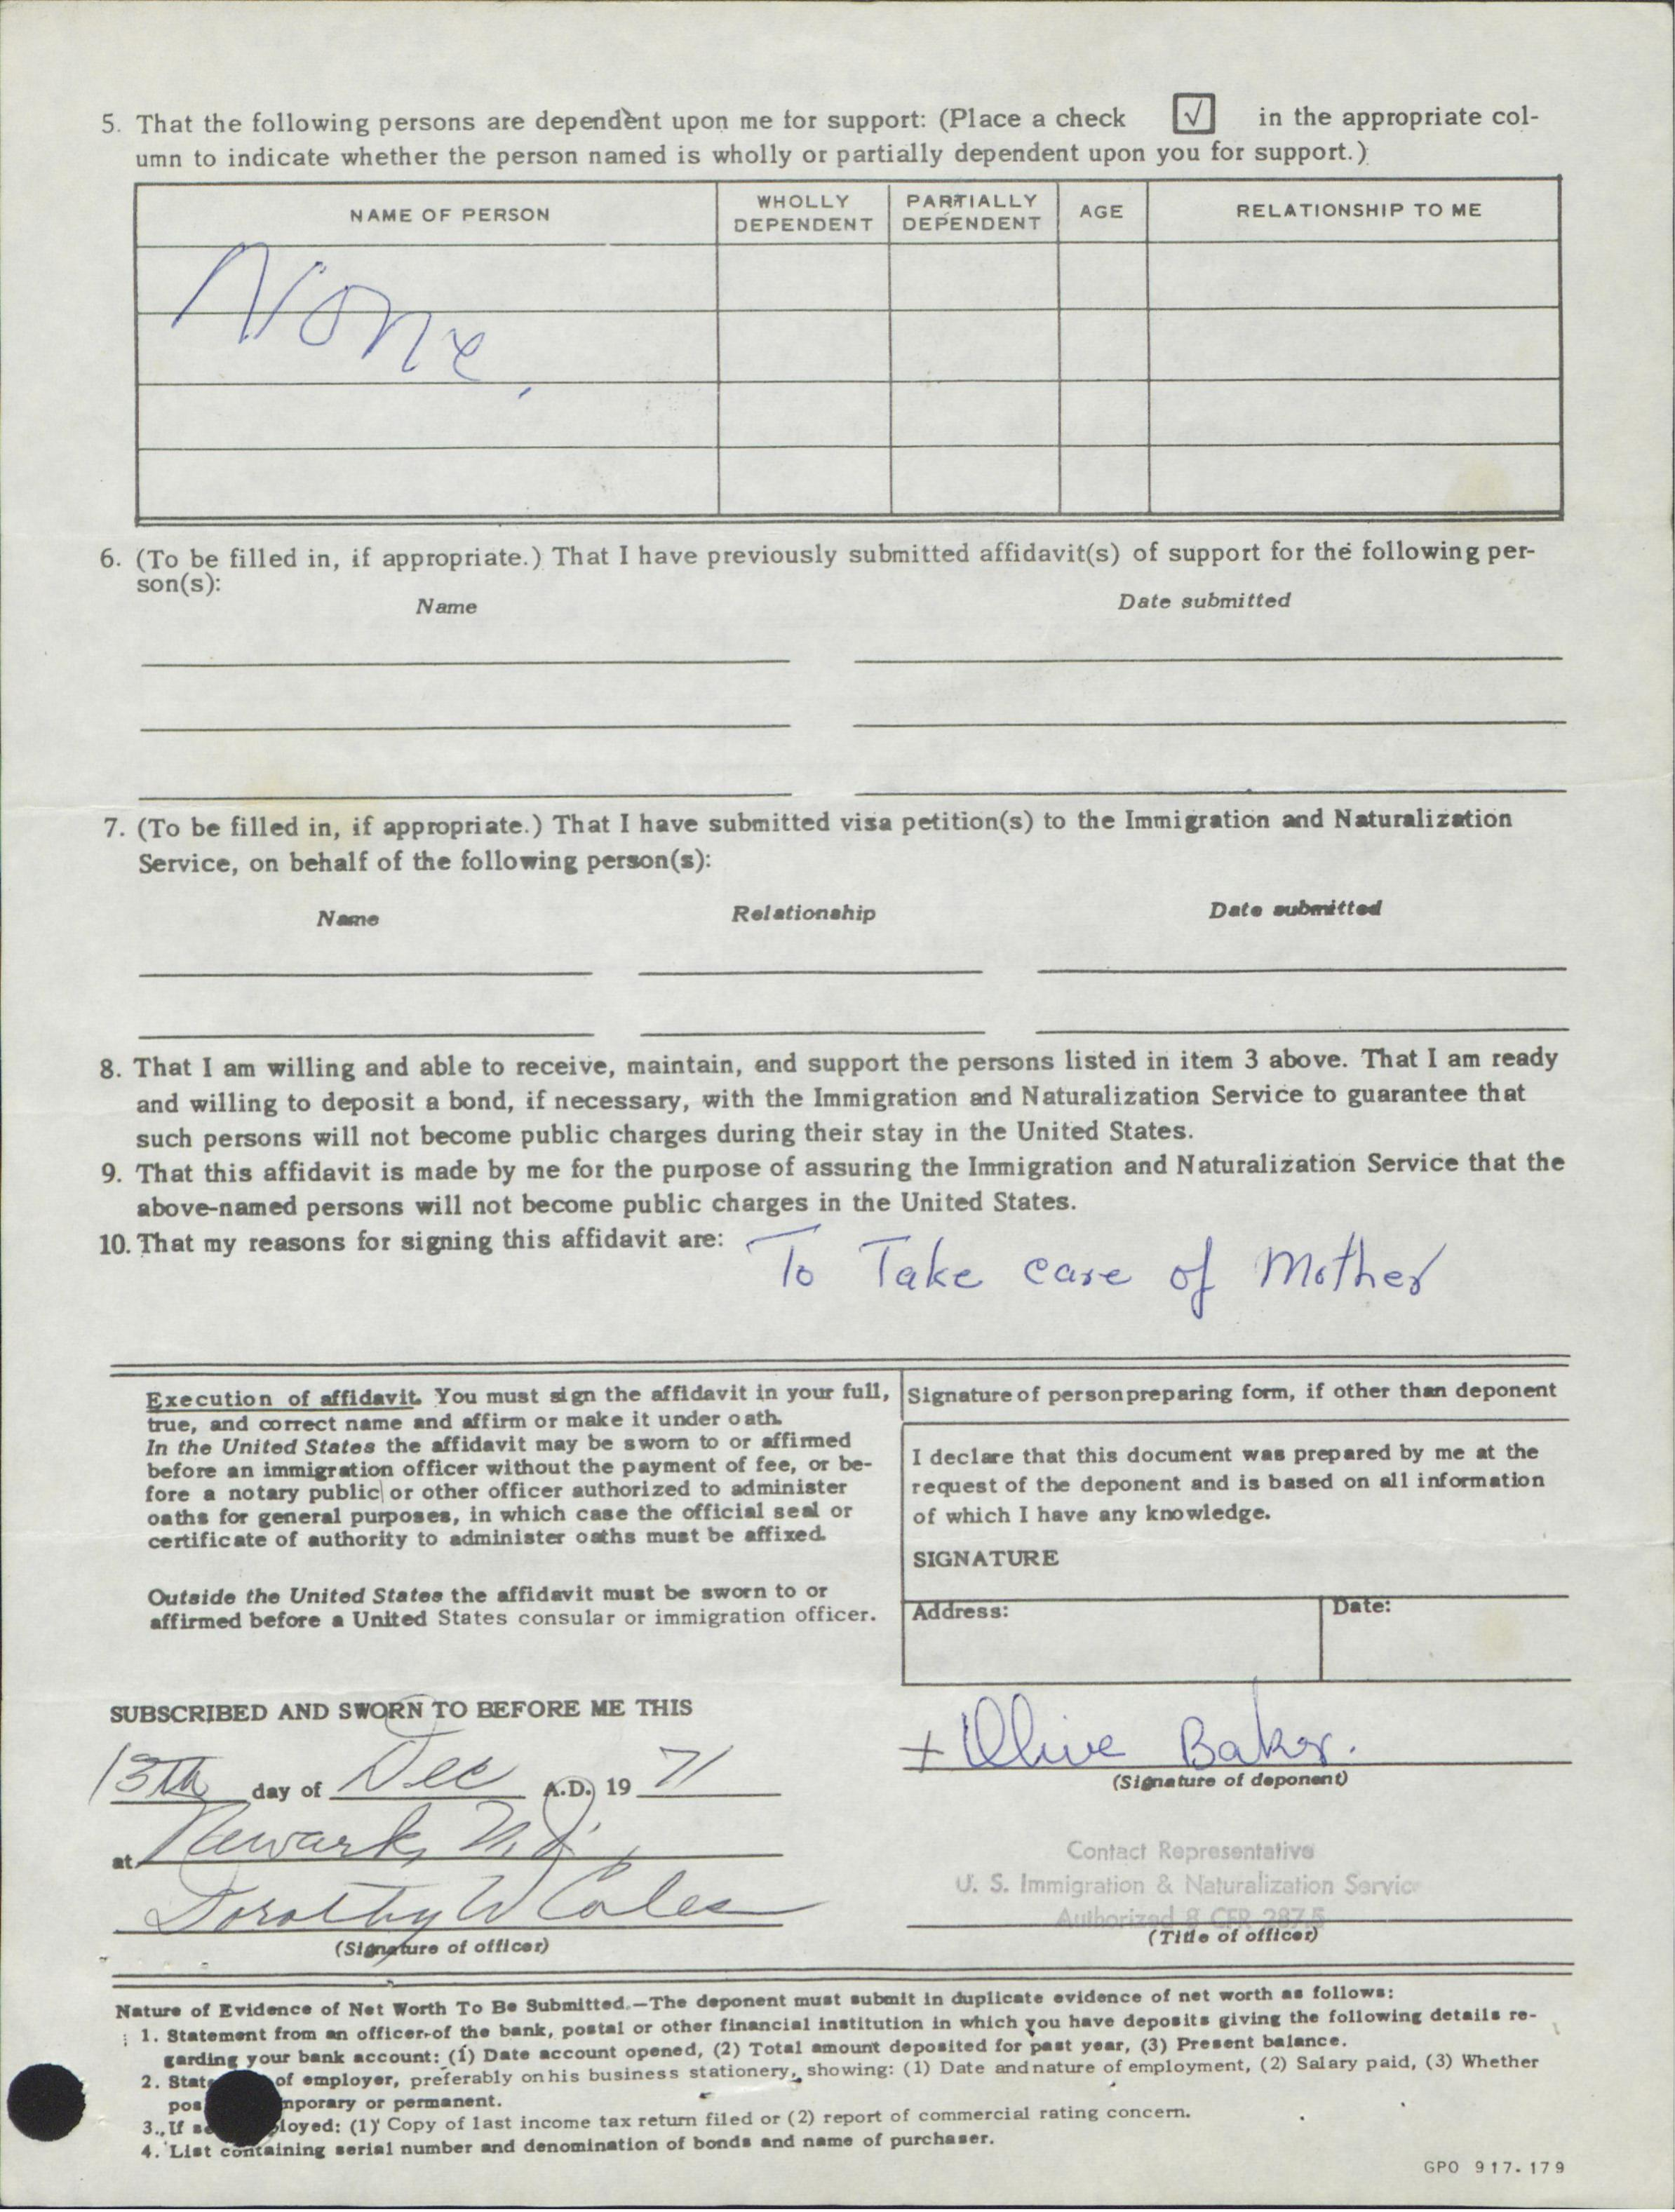 5. That the following persons are dependent upon me for support: (Place a check [√] in the appropriate col-
umn to indicate whether the person named is wholly or partially dependent upon you for support.)
NAME OF PERSON WHOLLY DEPENDENT PARTIALLY DEPENDENT AGE RELATIONSHIP TO ME
None.
6. (To be filled in, if appropriate.) That I have previously submitted affidavit(s) of support for the following per-
son(s):
Name Date submitted
7. (To be filled in, if appropriate.) That I have submitted visa petition(s) to the Immigration and Naturalization
Service, on behalf of the following person(s):
Name Relationship Date submitted
8. That I am willing and able to receive, maintain, and support the persons listed in item 3 above. That I am ready
and willing to deposit a bond, if necessary, with the Immigration and Naturalization Service to guarantee that
such persons will not become public charges during their stay in the United States.
9. That this affidavit is made by me for the purpose of assuring the Immigration and Naturalization Service that the
above-named persons will not become public charges in the United States.
10. That my reasons for signing this affidavit are: To Take care of Mother
Execution of affidavit. You must sign the affidavit in your full,
true, and correct name and affirm or make it under oath.
In the United States the affidavit may be sworn to or affirmed
before an immigration officer without the payment of fee, or be-
fore a notary public or other officer authorized to administer
oaths for general purposes, in which case the official seal or
certificate of authority to administer oaths must be affixed.
Outside the United States the affidavit must be sworn to or
affirmed before a United States consular or immigration officer.
Signature of person preparing form, if other than deponent
I declare that this document was prepared by me at the
request of the deponent and is based on all information
of which I have any knowledge.
SIGNATURE
Address: Date:
SUBSCRIBED AND SWORN TO BEFORE ME THIS
13th day of Dec A.D. 19 71
+ Olive Baker.
(Signature of deponent)
at Newark, N.J.
Contact Representative
U. S. Immigration & Naturalization Service
Authorized 8 CFR 287.5
Dorothy W Coles
(Signature of officer) (Title of officer)
Nature of Evidence of Net Worth To Be Submitted.—The deponent must submit in duplicate evidence of net worth as follows:
1. Statement from an officer of the bank, postal or other financial institution in which you have deposits giving the following details re-
garding your bank account: (1) Date account opened, (2) Total amount deposited for past year, (3) Present balance.
2. State of employer, preferably on his business stationery, showing: (1) Date and nature of employment, (2) Salary paid, (3) Whether
pos mporary or permanent.
3. If se loyed: (1) Copy of last income tax return filed or (2) report of commercial rating concern.
4. List containing serial number and denomination of bonds and name of purchaser.
GPO 917-179